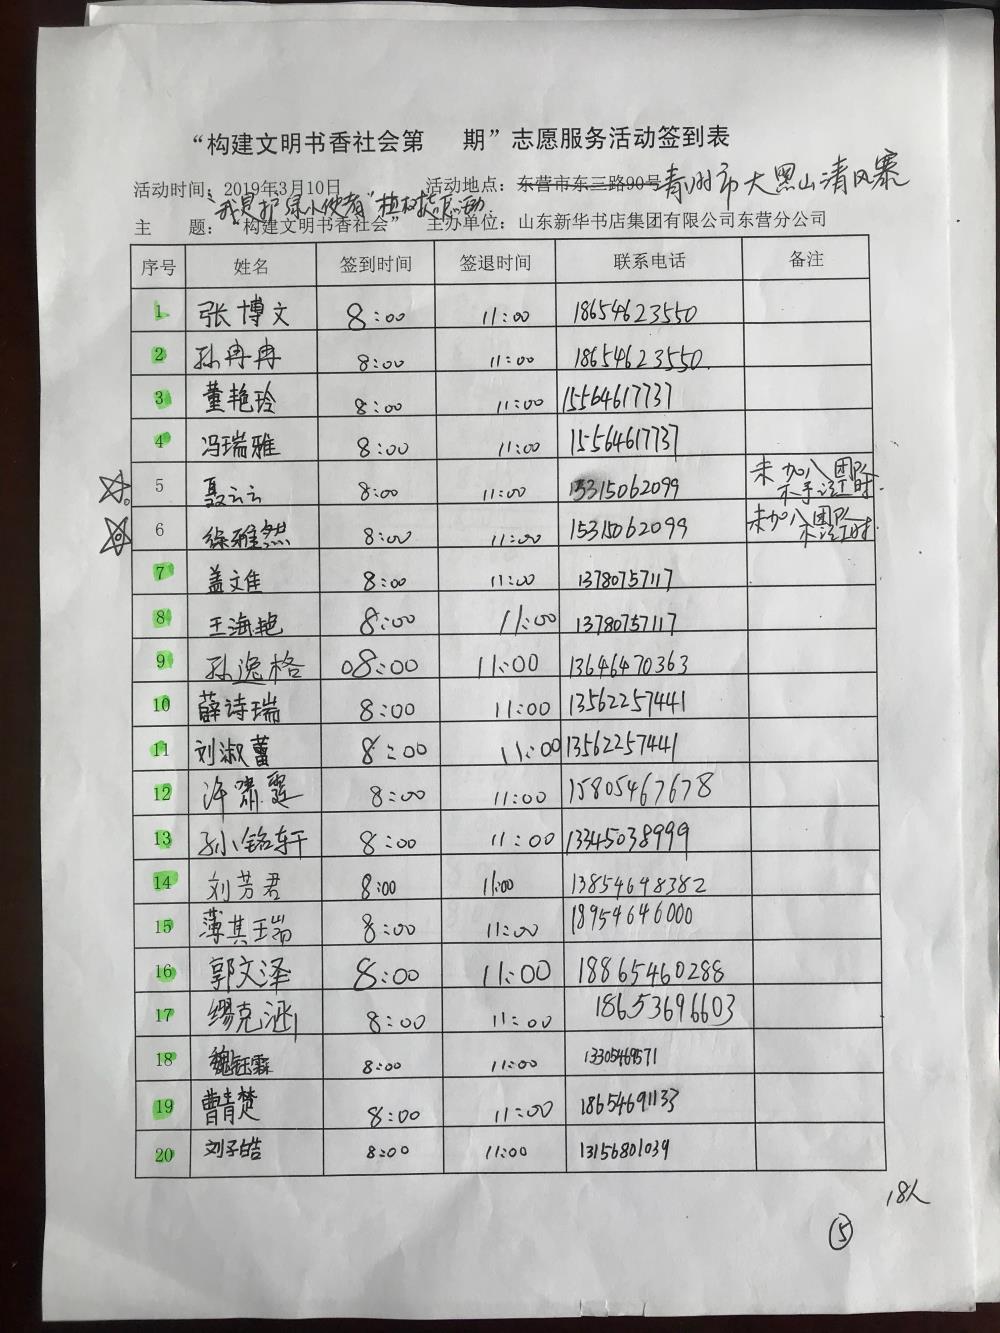 “构建文明书香社会第 期”志愿服务活动签到表
活动时间：2019年3月10日 活动地点：东营市东三路90号青州市大黑山清风寨
“我是护绿小使者”植树志愿活动
主 题：“构建文明书香社会” 主办单位：山东新华书店集团有限公司东营分公司
序号 姓名 签到时间 签退时间 联系电话 备注
1 张博文 8:00 11:00 18654623550
2 孙冉冉 8:00 11:00 18654623550.
3 董艳玲 8:00 11:00 15564617737
4 冯瑞雅 8:00 11:00 15564617737
5 聂云云 8:00 11:00 15315062099 未加入团队 不予记工时.
6 徐雅然 8:00 11:00 15315062099 未加入团队 未记工时
7 盖文佳 8:00 11:00 13780757117
8 王海艳 8:00 11:00 13780757117
9 孙逸格 08:00 11:00 13646470363
10 薛诗瑞 8:00 11:00 13562257441
11 刘淑蕾 8:00 11:00 13562257441
12 许啸霆 8:00 11:00 15805467678
13 孙铭轩 8:00 11:00 13345038999
14 刘芳君 8:00 11:00 13854698382
15 薄其瑞 8:00 11:00 18954646000
16 郭文泽 8:00 11:00 18865460288
17 缪克涵 8:00 11:00 18653696603
18 魏钰霖 8:00 11:00 13305469571
19 曹青楚 8:00 11:00 18654691133
20 刘子皓 8:00 11:00 13156801039
18人
⑤